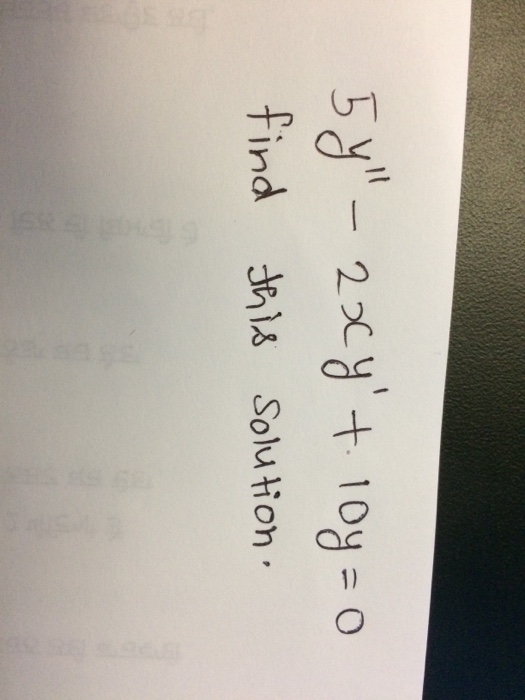 5y" - 2xy' + 10y = 0
find this solution.